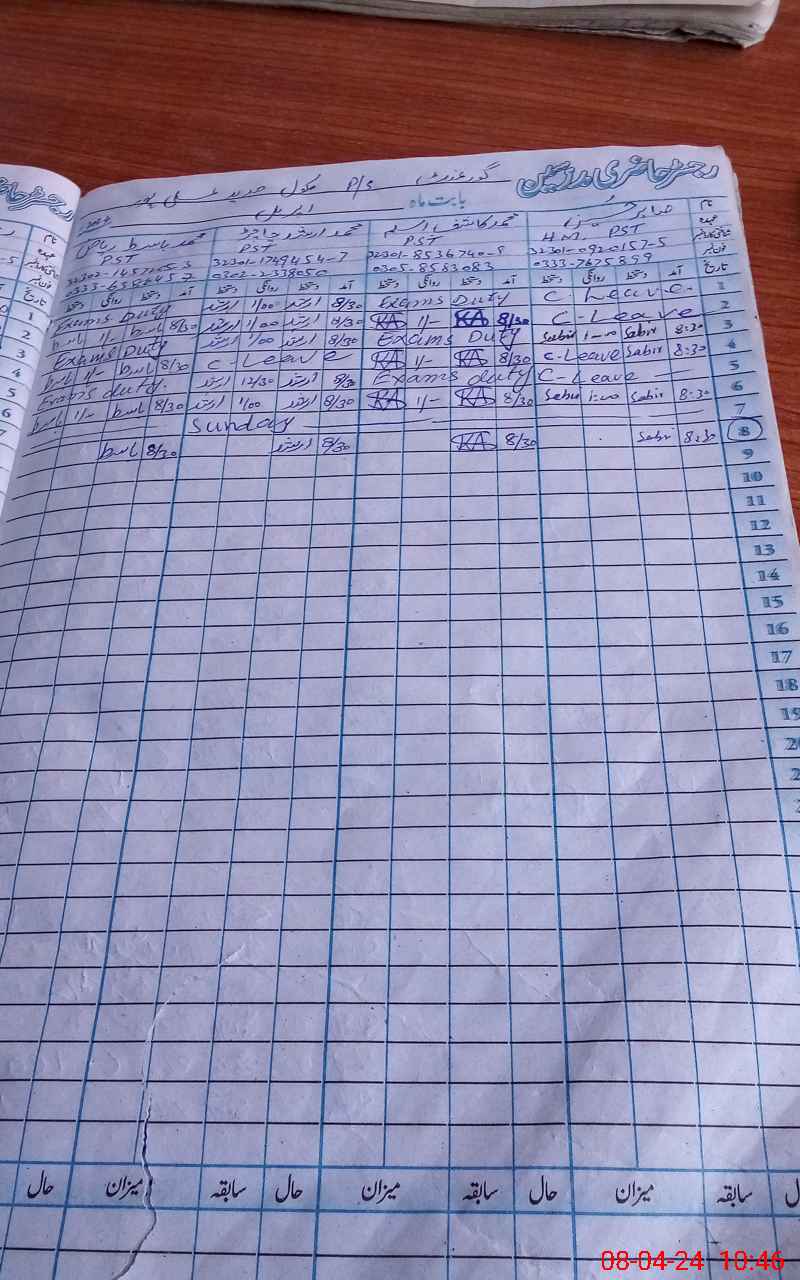 رجسٹر حاضری مدرسین
گورنمنٹ P/S سکول
بابت ماہ اپریل
نام
محمد کاشف اسلم محمد ارشد محمد باسط ریاض
عہدہ H.M. PST PST PST PST
32301-0920157-5 32301-8536740-9 32301-1749454-7
0333-7675899 0305-8583083 0302-2338050
تاریخ آمد دستخط روانگی دستخط آمد دستخط روانگی دستخط آمد دستخط روانگی دستخط آمد دستخط روانگی دستخط
1 C-Leave Exams Duty 8/30 ارشد 1/00 ارشد Exams Duty
2 C-Leave 8/30 KA 1/- KA 8/30 ارشد 1/00 ارشد 8/30 باسط 1/- باسط
3 8:30 Sabir 1:00 Sabir Exams Duty 8/30 ارشد 1/00 ارشد Exams Duty
4 8:30 Sabir C-Leave 8/30 KA 1/- KA C-Leave 8/30 باسط 1/- باسط
5 C-Leave Exams duty 8/30 ارشد 12/30 ارشد Exams duty
6 8:30 Sabir 1:00 Sabir 8/30 KA 1/- KA 8/30 ارشد 1/00 ارشد 8/30 باسط 1/- باسط
7 Sunday
8 8:30 Sabir 8/30 KA 8/30 ارشد 8/30 باسط
9
10
11
12
13
14
15
16
17
18
19
سابقہ میزان حال سابقہ میزان حال سابقہ میزان حال
08-04-24 10:46